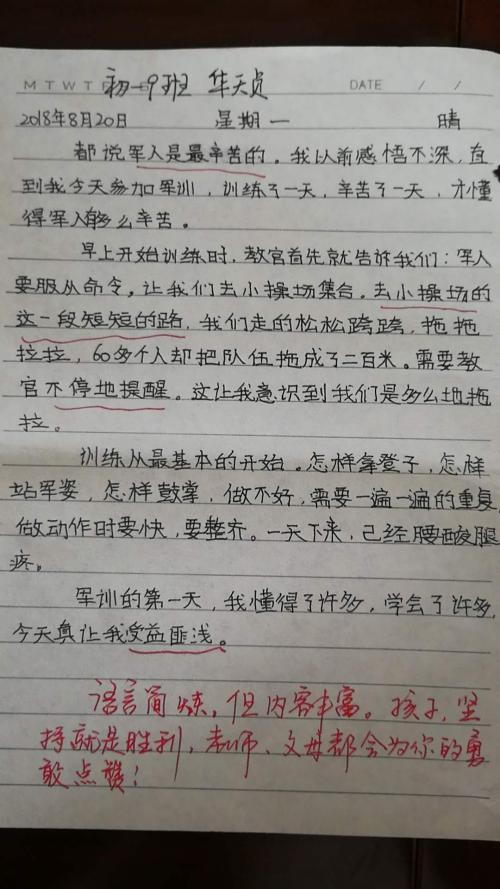 M T W T
初一9班 华天贞
DATE / /
2018年8月20日 星期一 晴
都说军人是最辛苦的。我以前感悟不深，直
到我今天参加军训，训练了一天，辛苦了一天，才懂
得军人够么辛苦。
早上开始训练时，教官首先就告诉我们：军人
要服从命令，让我们去小操场集合。去小操场的
这一段短短的路，我们走的松松跨跨，拖拖
拉拉，60多个人却把队伍拖成了二百米。需要教
官不停地提醒。这让我意识到我们是多么地拖
拉。
训练从最基本的开始。怎样拿凳子，怎样
站军姿，怎样鼓掌，做不好，需要一遍一遍的重复，
做动作时要快，要整齐。一天下来，已经腰酸腿
疼。
军训的第一天，我懂得了许多，学会了许多，
今天真让我受益匪浅。
语言简炼，但内容丰富。孩子，坚
持就是胜利，老师、父母都会为你的勇
敢点赞！